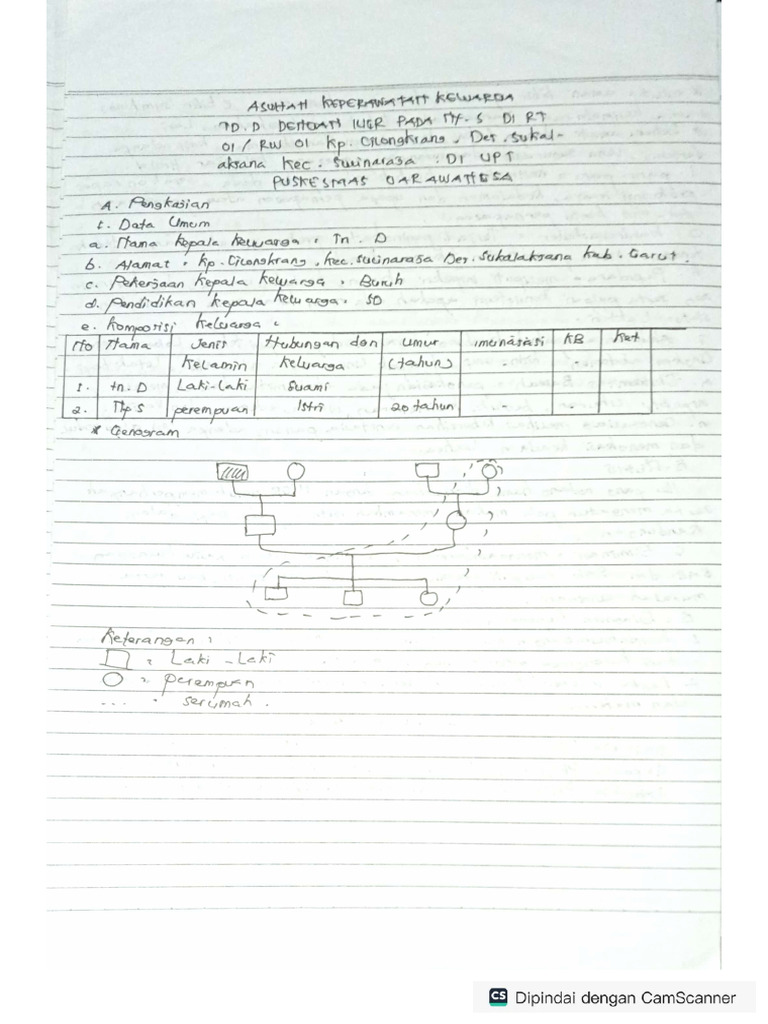 ASUHAN KEPERAWATAN KELUARGA
TD.D DENGAN IUGR PADA NY.S DI RT
01 / RW 01 Kp. Cilongkrang, Des. Sukal-
aksana Kec. Sucinaraja. DI UPT
PUSKESMAS
A. Pengkajian
1. Data Umum
a. Nama kepala keluarga : Tn. D
b. Alamat : Kp. Cilongkrang, Kec. Sucinaraja Des. Sukalaksana Kab. Garut.
c. Pekerjaan kepala keluarga : Buruh
d. Pendidikan kepala keluarga : SD
e. Komposisi keluarga :
No Nama Jenis Hubungan dan Umur imunasasi KB Ket
Kelamin keluarga (tahun) - -
1. tn. D Laki-Laki Suami
2. Ny S perempuan Istri 20 tahun - -
* Genogram
Keterangan :
: Laki-Laki
: perempuan
... : serumah.
CS Dipindai dengan CamScanner